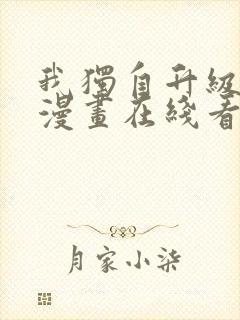 我獨自升級
漫畫在綫看
月家小柒